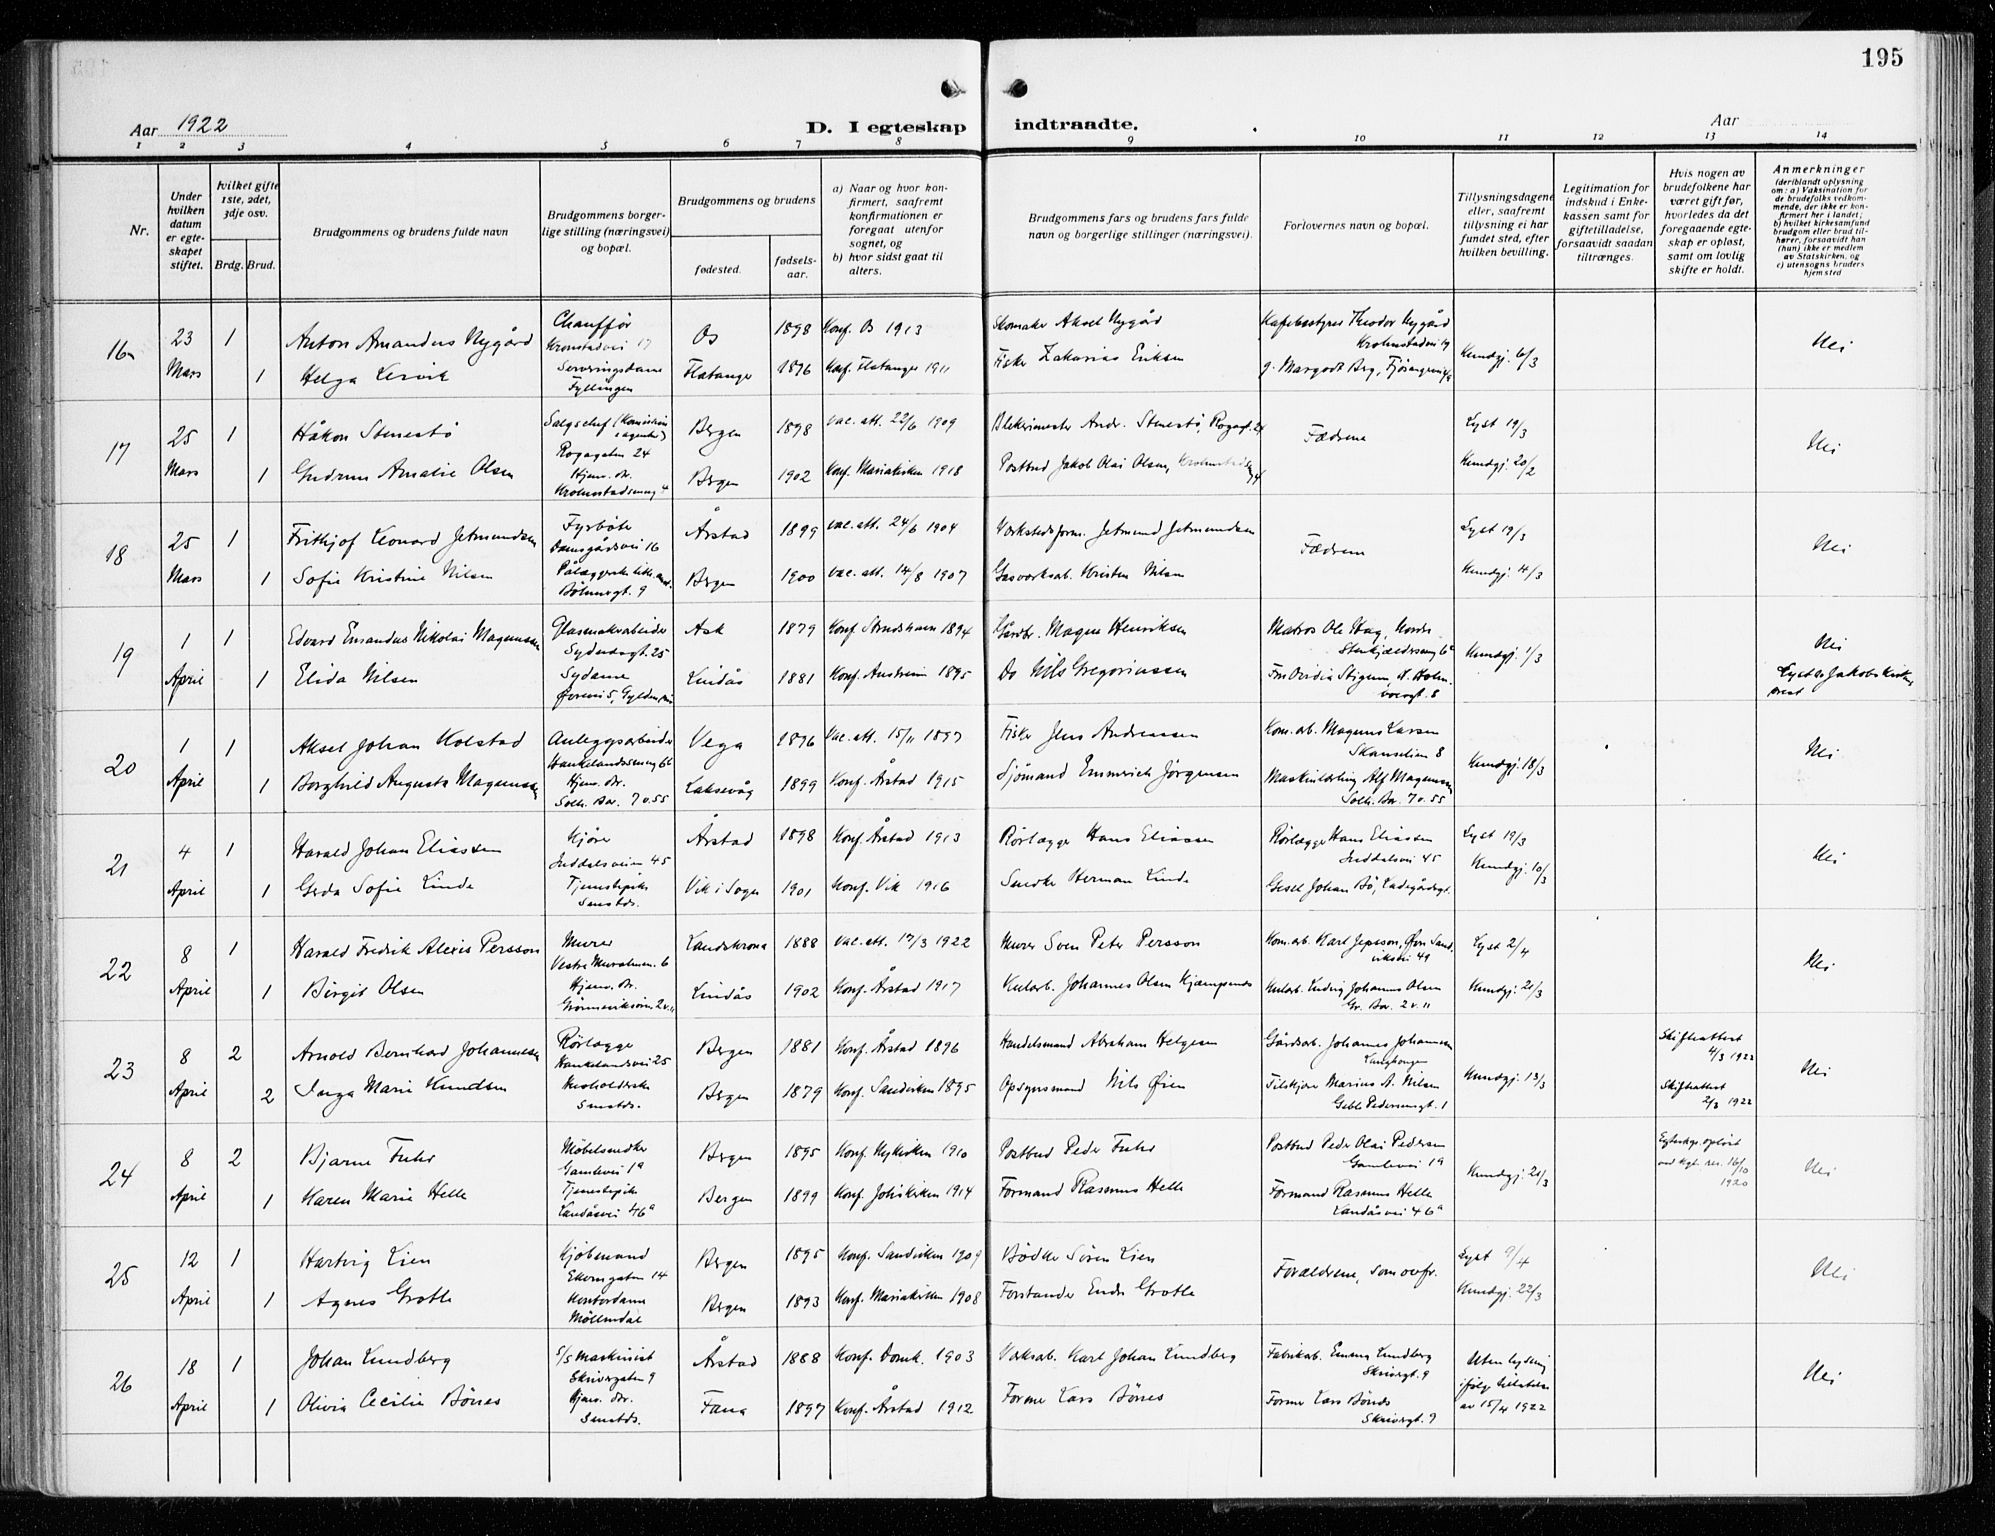 195
Aar 1922
D. I egteskap indtraadte.
Aar
1 2 3 4 5 6 7 8 9 10 11 12 13 14
Nr.
Under hvilken datum er egteskapet stiftet.
hvilket gifte 1ste, 2det, 3dje osv.
Brdg. Brud.
Brudgommens og brudens fulde navn
Brudgommens borgerlige stilling (næringsvei) og bopæl.
Brudgommens og brudens
fødested.
fødselsaar.
a) Naar og hvor konfirmert, saafremt konfirmationen er foregaat utenfor sognet, og
b) hvor sidst gaat til alters.
Brudgommens fars og brudens fars fulde navn og borgerlige stillinger (næringsvei).
Forlovernes navn og bopæl.
Tillysningsdagene eller, saafremt tillysning ei har fundet sted, efter hvilken bevilling.
Legitimation for indskud i Enkekassen samt for giftetilladelse, forsaavidt saadan tiltrænges.
Hvis nogen av brudefolkene har været gift før, hvorledes da det foregaaende egteskap er opløst, samt om lovlig skifte er holdt.
Anmerkninger
(deriblandt oplysning om: a) Vaksination for de brudefolks vedkommende, der ikke er konfirmert her i landet; b) hvilket kirkesamfund brudgom eller brud tilhører, forsaavidt han (hun) ikke er medlem av Statskirken, og c) utensogns bruders hjemsted
16 23 1 Anton Amandus Nygård Chauffør Kronstadvei 17 Os 1898 Konf. Os 1913 Skomaker Aksel Nygård Theodor Nygård Kundgj. 6/3 Nei
Mars 1 Helga Lervik Serveringsdame Fyllingen Flatanger 1896 Konf. Flatanger 1911 Fisker Zakarias Eriksen g. Margodt Berg,
17 25 1 Håkon Stenestø Salgschef Rogagaten 24 Bergen 1898 vac. att. 22/6 1909 Blekkermester Andr. Stenestø, Rogagt. 24 Fædrene Lyst 19/3 Nei
Mars 1 Gudrun Amalie Olsen Hjem. dr. Bergen 1902 Konf. Mariakirken 1918 Postbud Jakob Olai Olsen, Kundgj. 20/2
18 25 1 Frithjof Leonard Jetmundsen Fyrbøter Damsgårdsvei 16 Årstad 1899 vac. att. 24/6 1904 Verkstedsform. Jetmund Jetmundsen Fædrene Lyst 19/3 Nei
Mars 1 Sofie Kristine Nilsen Bergen 1900 vac. att. 14/8 1907 Gasverksarb. Kristen Nilsen Kundgj. 4/3
19 1 1 Edvard Emandus Nikolai Magnussen Glasmakerarbeider Sydnesgt. 25 Ask 1879 Konf. 1894 Gårdbr. Magne Henriksen Matros Ole Hag, Kundgj. 1/3 Nei
April 1 Elida Nilsen Sydame Lindås 1881 Konf. Austrheim 1895 Do Nils Gregoriussen Lyst av Jakobs Kirkes prest
20 1 1 Aksel Johan Kolstad Anleggsarbeider Haukelandsveien 66 Vega 1896 Vac. att. 15/11 1897 Fisker Jens Andreassen Kom. arb. Magnus Larsen Skanselien 8 Kundgj. 18/3 Nei
April 1 Borghild Augusta Magnussen Hjem. dr. Solh. Bar. 7 v. 55 Laksevåg 1899 Konf. Årstad 1915 Sjømand Emmerich Jørgensen Maskinlærling Alf Magnussen Solh. Bar. 7 v. 55
21 4 1 Harald Johan Eliassen Kjører Inddalsveien 45 Årstad 1898 Konf. Årstad 1913 Rørlægger Hans Eliassen Rørlægger Hans Eliassen Inddalsvei 45 Lyst 19/3 Nei
April 1 Gerda Sofie Linde Tjenestepike Samstds. Vik i Sogn 1901 Konf. Vik 1916 Snedker Herman Linde Gesel Johan Bø, Ladegårdsgt. Kundgj. 10/3
22 8 1 Harald Fredrik Alexis Persson Murer Vestre Muralmen. 6 Landskrona 1888 Vac. att. 17/3 1922 Murer Sven Peter Persson Kom. arb. Karl Jepsson, Øvr. Sandviksvei 49 Lyst 2/4 Nei
April 1 Birgit Olsen Hjem. dr. Grønneviksøren 2 v. 11 Lindås 1902 Konf. Årstad 1917 Kularb. Johannes Olsen Kjæmpenes Kularb. Ludvig Johannes Olsen Gr. Bar. 2 v. 11 Kundgj. 21/3
23 8 2 Arnold Bernhard Johannessen Rørlægger Haukelandsvei 25 Bergen 1881 Konf. Årstad 1896 Handelsmand Abraham Helgesen Gårdsarb. Johannes Johannesen Langhaugen Kundgj. 13/3 Skifteattest 4/3 1922 Nei
April 2 Inga Marie Knudsen Husholderske Samstds. Bergen 1879 Konf. Sandviken 1895 Opsynsmand Nils Øien Filskjærer Marius A. Nilsen Geble Pedersensgt. 1 Skifteattest 2/3 1922
24 8 2 Bjarne Fuhr Møbelsnedker Gamlevei 1a Bergen 1895 Konf. Nykirken 1910 Postbud Peder Fuhr Postbud Peder Olai Pedersen Gamlevei 1a Kundgj. 21/3 Egteskap opløst ved kgl. res. 16/10 1920 Nei
April 1 Karen Marie Helle Tjenestepike Landåsvei 46a Bergen 1899 Konf. Johskirken 1914 Formand Rasmus Helle Formand Rasmus Helle Landåsvei 46a
25 12 1 Hartvig Lien Kjøbmand Ekerngaten 14 Bergen 1895 Konf. Sandviken 1909 Bødker Søren Lien Forældrene, som ovfr. Lyst 9/4 Nei
April 1 Agnes Grotle Kontordame Møllendal Bergen 1893 Konf. Mariakirken 1908 Forstander Endre Grotle Kundgj. 22/3
26 18 1 Johan Lundberg S/S Maskinist Skrivergaten 9 Årstad 1888 Konf. Domk. 1903 Verksarb. Karl Johan Lundberg Fabrikarb. Emma Lundberg Skrivergt. 9 Uten lysning ifølge tillatelse av 15/4 1922 Nei
April 1 Olivia Cecilie Børres Hjem. dr. Samstds. Fana 1897 Konf. Årstad 1912 Former Lars Børres Former Lars Børres Skrivergt. 9